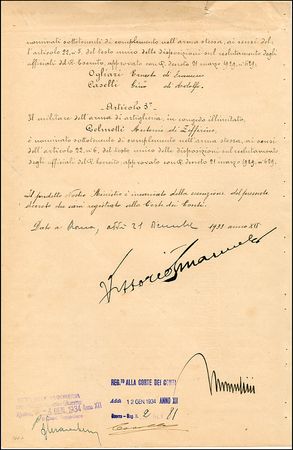 nominati sottotenenti di complemento nell'arma stessa, ai sensi del
l'articolo 22, n. 5, del testo unico delle disposizioni sul reclutamento degli
ufficiali del R. Esercito, approvato con R. decreto 21 marzo 1929, n. 629.
Ogliari Ernesto di Francesco
Caselli Gino di Adolfo.
Articolo 3°
Il militare dell'arma di artiglieria, in congedo illimitato,
Antonio di Zeffirino,
è nominato sottotenente di complemento nell'arma stessa, ai sensi
dell'articolo 22, n. 6, del testo unico delle disposizioni sul reclutamento
degli ufficiali del R. Esercito, approvato con R. decreto 21 marzo 1929, n. 629.
Il predetto Nostro Ministro è incaricato della esecuzione del presente
decreto che sarà registrato alla Corte dei Conti.
Dato a Roma, addì 21 Dicembre 1933 anno XII
Vittorio Emanuele
Mussolini
REG.TO ALLA CORTE DEI CONTI
Addì 12 GEN. 1934 ANNO XII
Guerra - Reg. 2 81
GEN. 1934 Anno XII